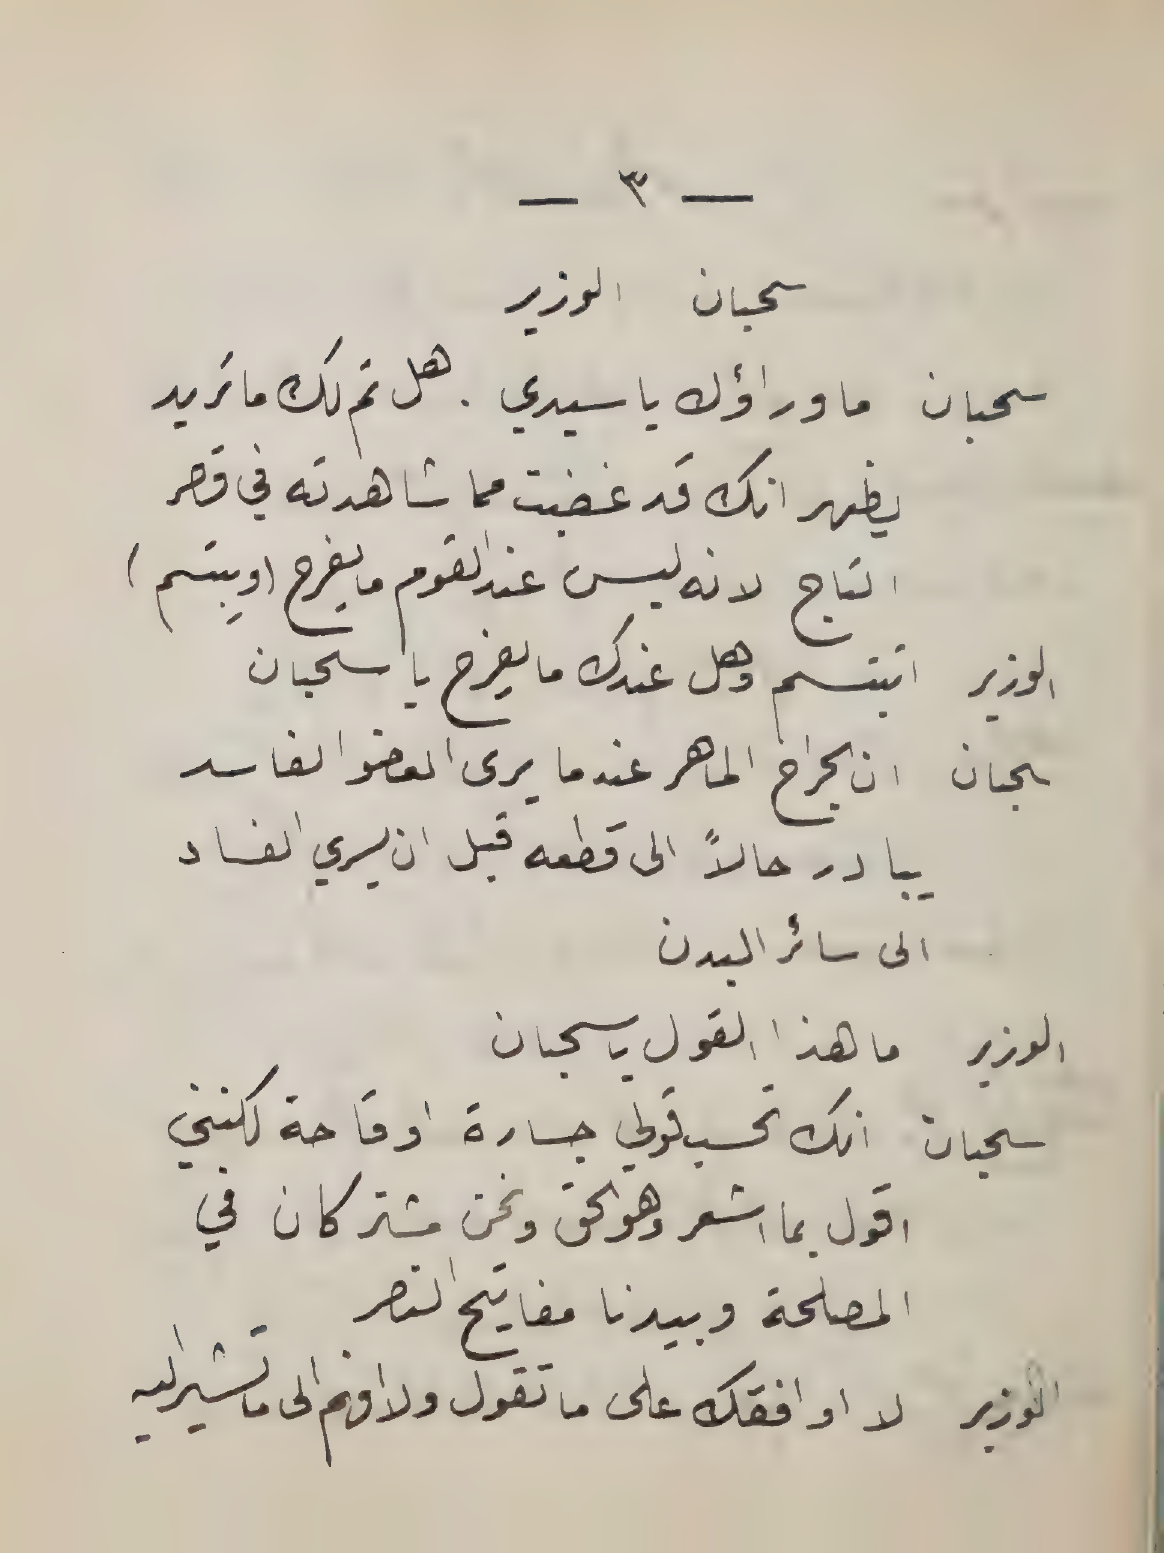 — ٣ —
سحبان الوزير
سحبان ما وراؤك يا سيدي . هل تم لك ما تريد
يظهر انك قد غضبت مما شاهدته في قصر
التاج لانه ليس عند القوم ما يفرح (ويبتسم)
الوزير اتبتسم وهل عندك ما يفرح يا سحبان
سحبان ان الجراح الماهر عندما يرى العضو الفاسد
يبادر حالاً الى قطعه قبل ان يسري الفساد
الى سائر البدن
الوزير ما هذا القول يا سحبان
سحبان انك تحسب قولي جسارة او قاحة لكنني
اقول بما اشعر وهو الحق ونحن مشتركان في
المصلحة وبيدنا مفاتيح القصر
الوزير لا اوافقك على ما تقول ولا افهم الى ما تشير اليه